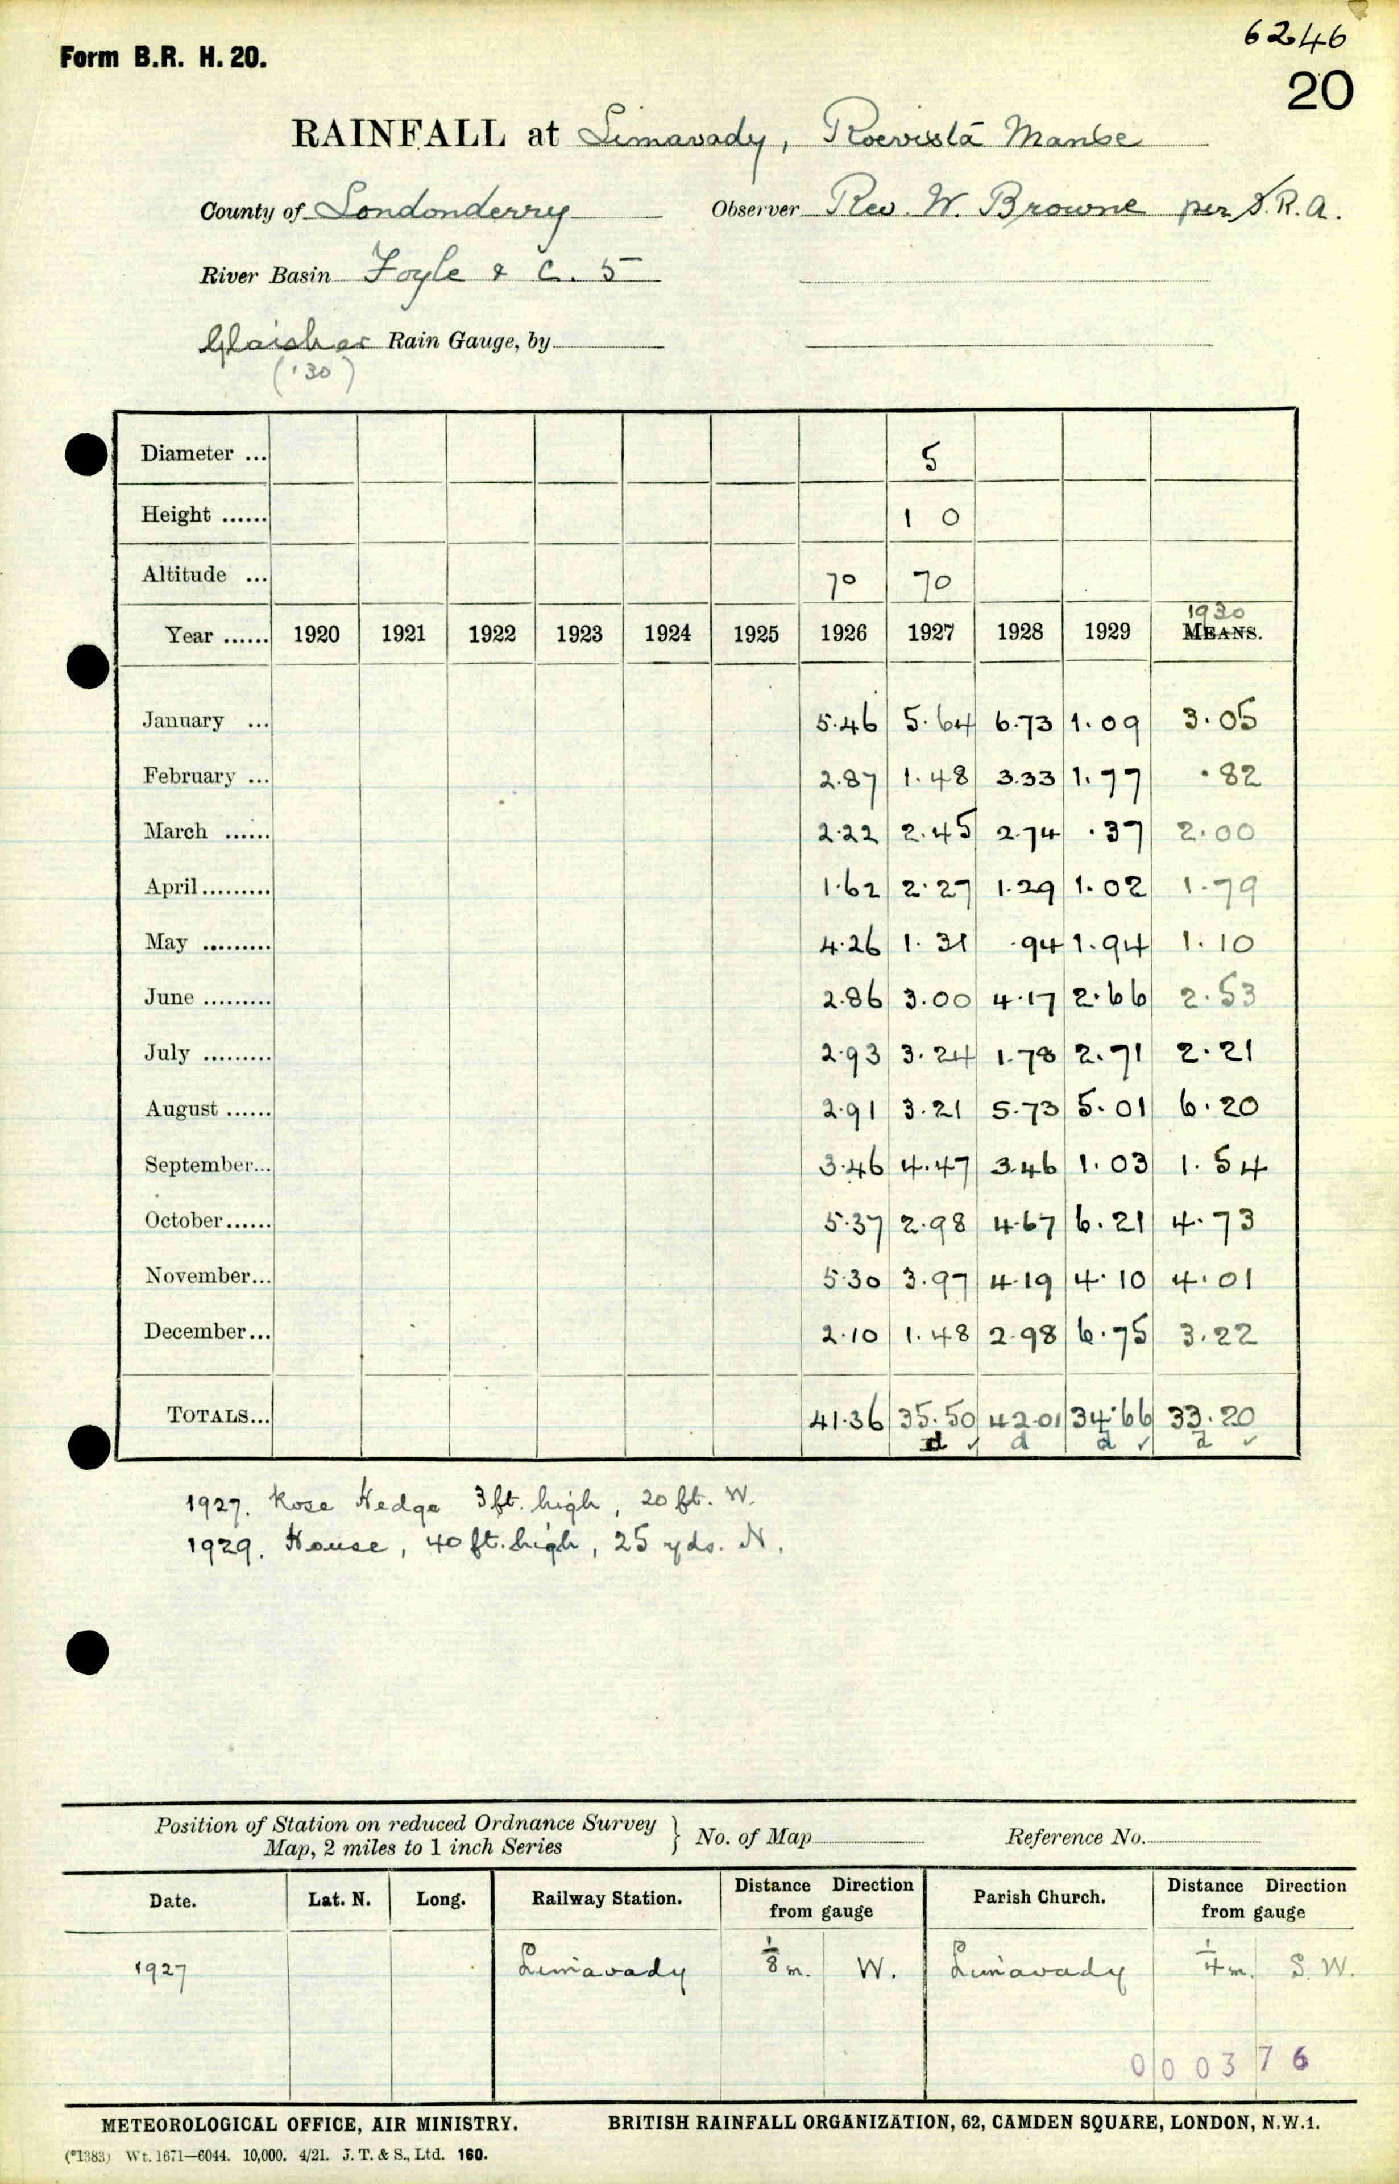 6246
Form B.R. H. 20.
20
RAINFALL at Limavady, Roevista Manse
County of Londonderry Observer Rev. W. Browne per S.R.A.
River Basin Foyle & C. 5
Glaisher Rain Gauge, by
('30)
Diameter ... 5
Height ...... 1 0
Altitude ... 70 70
1930
Year ...... 1920 1921 1922 1923 1924 1925 1926 1927 1928 1929 MEANS.
January ... 5.46 5.64 6.73 1.09 3.05
February ... 2.87 1.48 3.33 1.77 .82
March ...... 2.22 2.45 2.74 .37 2.00
April ......... 1.62 2.27 1.29 1.02 1.79
May ......... 4.26 1.31 .94 1.94 1.10
June ......... 2.86 3.00 4.17 2.66 2.53
July ......... 2.93 3.24 1.78 2.71 2.21
August ...... 2.91 3.21 5.73 5.01 6.20
September... 3.46 4.47 3.46 1.03 1.54
October...... 5.37 2.98 4.67 6.21 4.73
November... 5.30 3.97 4.19 4.10 4.01
December... 2.10 1.48 2.98 6.75 3.22
TOTALS... 41.36 35.50 42.01 34.66 33.20
d ✓ d d ✓ d ✓
1927. Rose Hedge 3ft. high, 20 ft. W.
1929. House, 40 ft. high, 25 yds. N.
Position of Station on reduced Ordnance Survey
Map, 2 miles to 1 inch Series } No. of Map Reference No.
Date. Lat. N. Long. Railway Station. Distance Direction from gauge Parish Church. Distance Direction from gauge
1927 Limavady 1/8 m. W. Limavady 1/4 m. S.W.
000376
METEOROLOGICAL OFFICE, AIR MINISTRY. BRITISH RAINFALL ORGANIZATION, 62, CAMDEN SQUARE, LONDON, N.W.1.
(*1383) Wt. 1671—6044. 10,000. 4/21. J. T. & S., Ltd. 160.